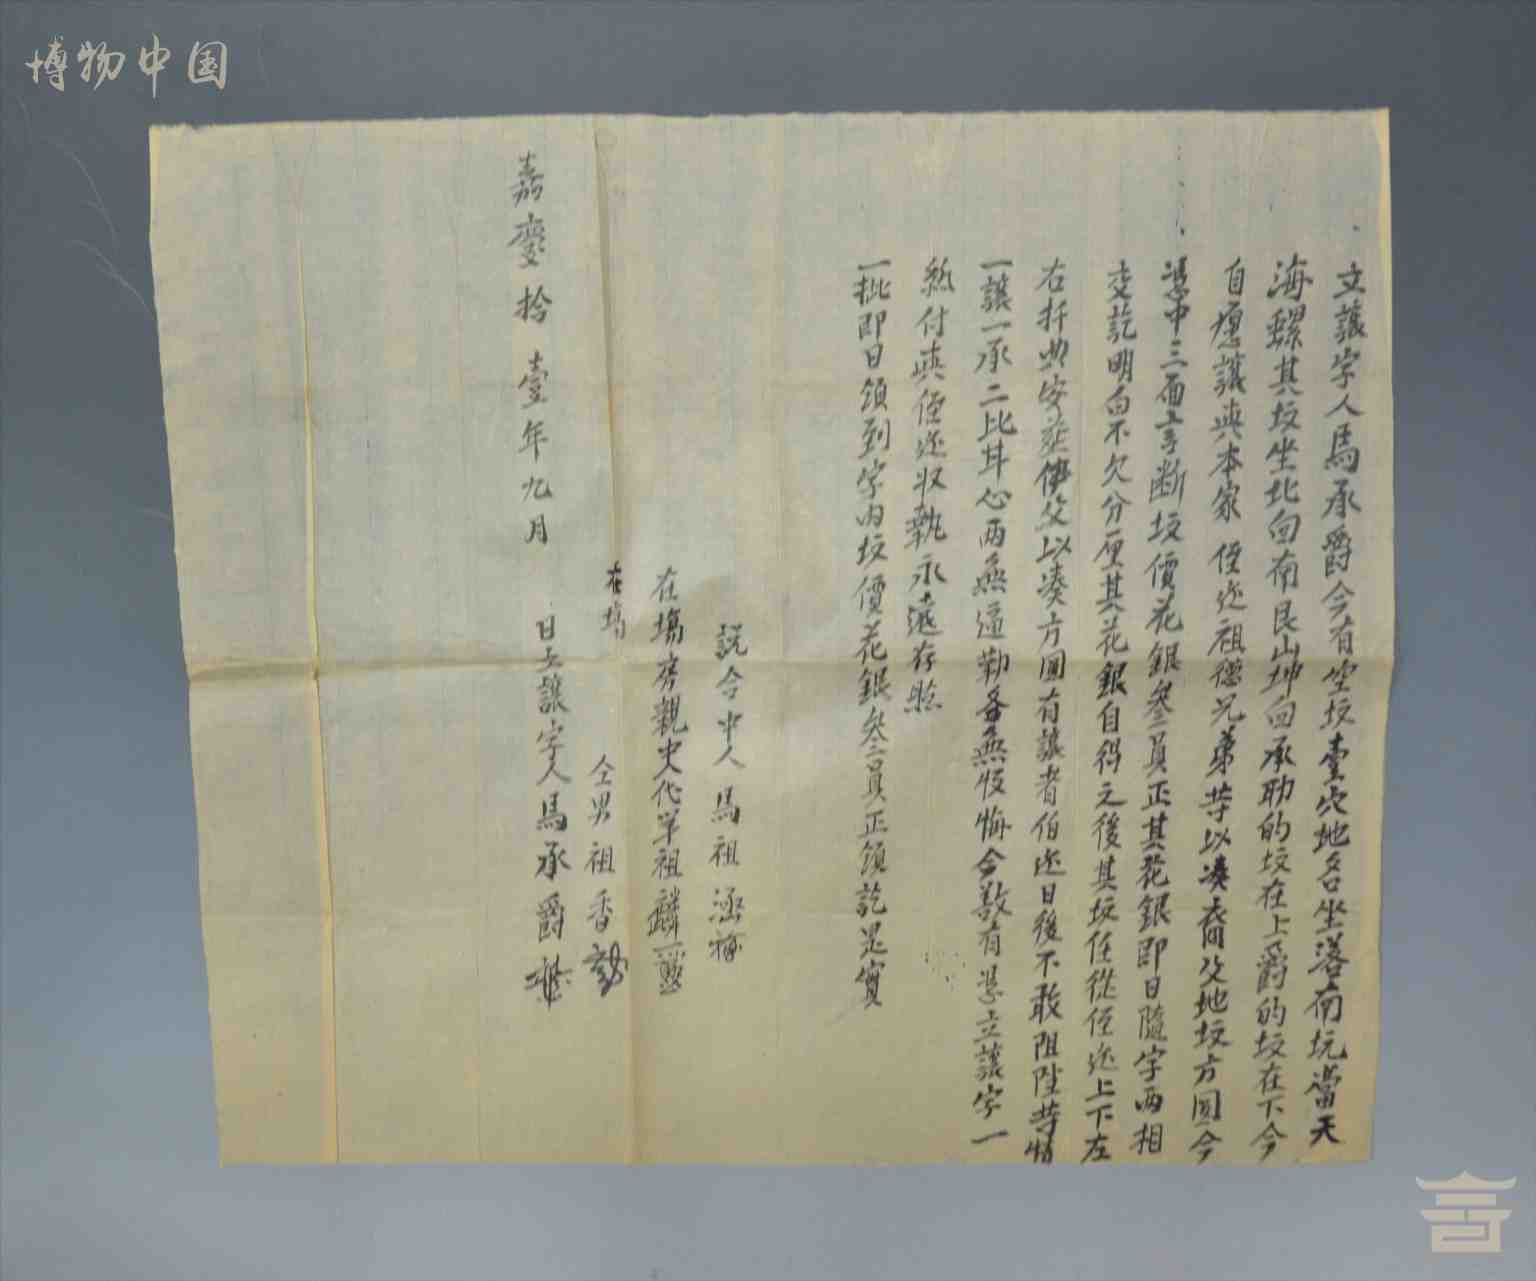 博物中国
立讓字人馬承爵今有空坟壹穴地名坐落南坑當天
海螺其坟坐北向南艮山坤向承助的坟在上爵的坟在下今
自愿讓與本家侄 祖德兄弟等以凑 父地坟方圓今
憑中三面言断坟價花銀叁員正其花銀即日隨字两相
交訖明白不欠分厘其花銀自得之後其坟任從侄 上下左
右扦 安 伊父以凑方圓有讓者伯 日後不敢阻 等情
一讓一承二比甘心两無逼勒各無反悔今欲有憑立讓字一
紙付與侄 收執永遠存照
一批即日領到字内坟價花銀叁員正領訖是實
説合中人馬祖
在塲房親史代筆祖麟
在塲 仝男祖香
嘉慶拾壹年九月 日立讓字人馬承爵